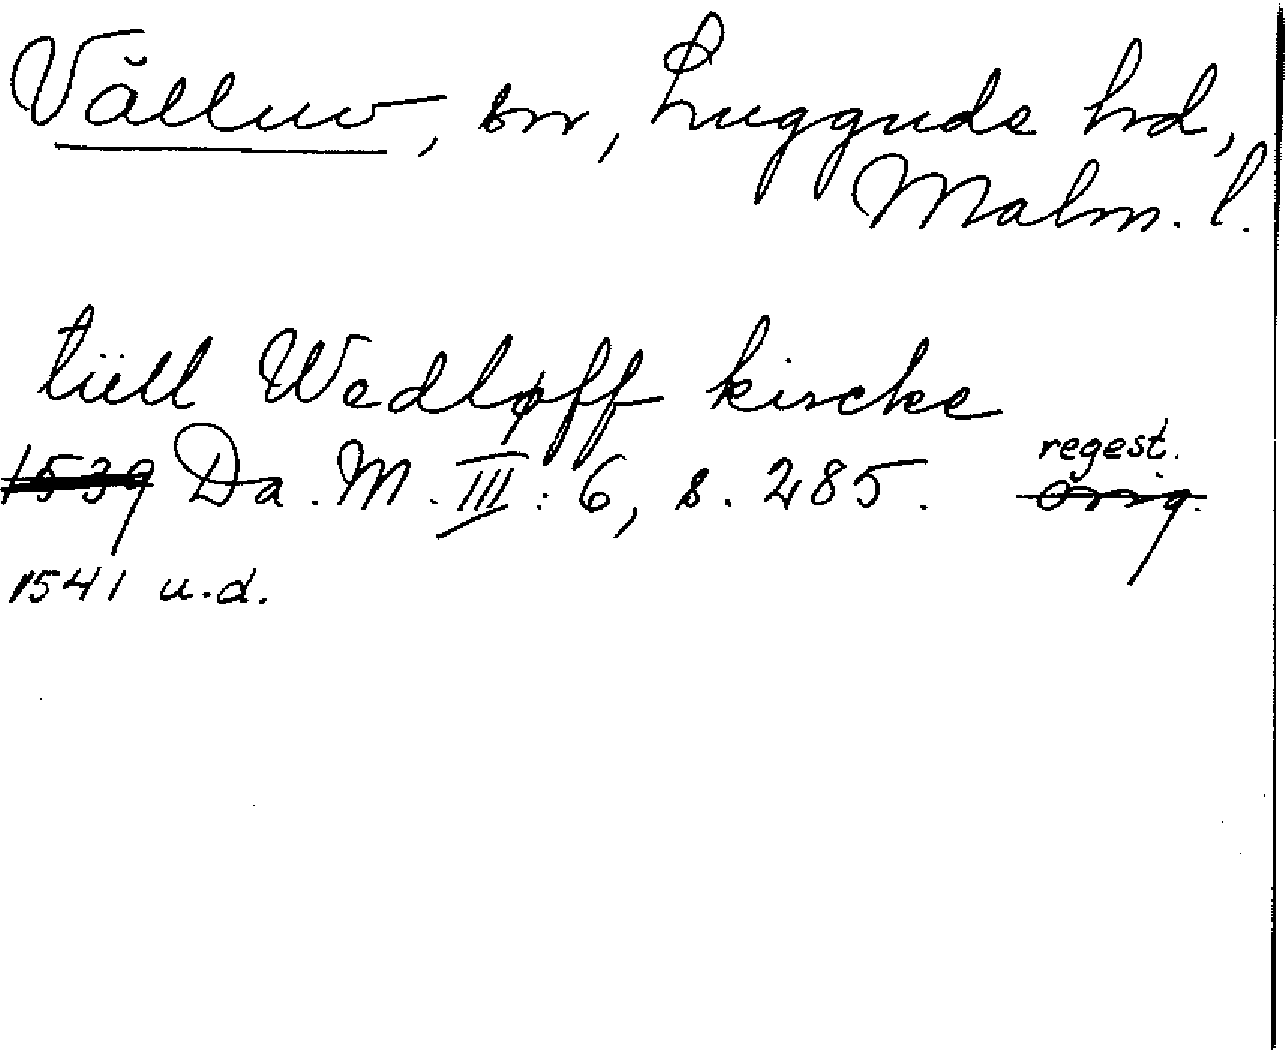 Välluv, sn, Luggude hd,
Malm. l.
tüll Wedløff kircke
regest.
1539 Da. M. III: 6, s. 285. orig.
1541 u.d.